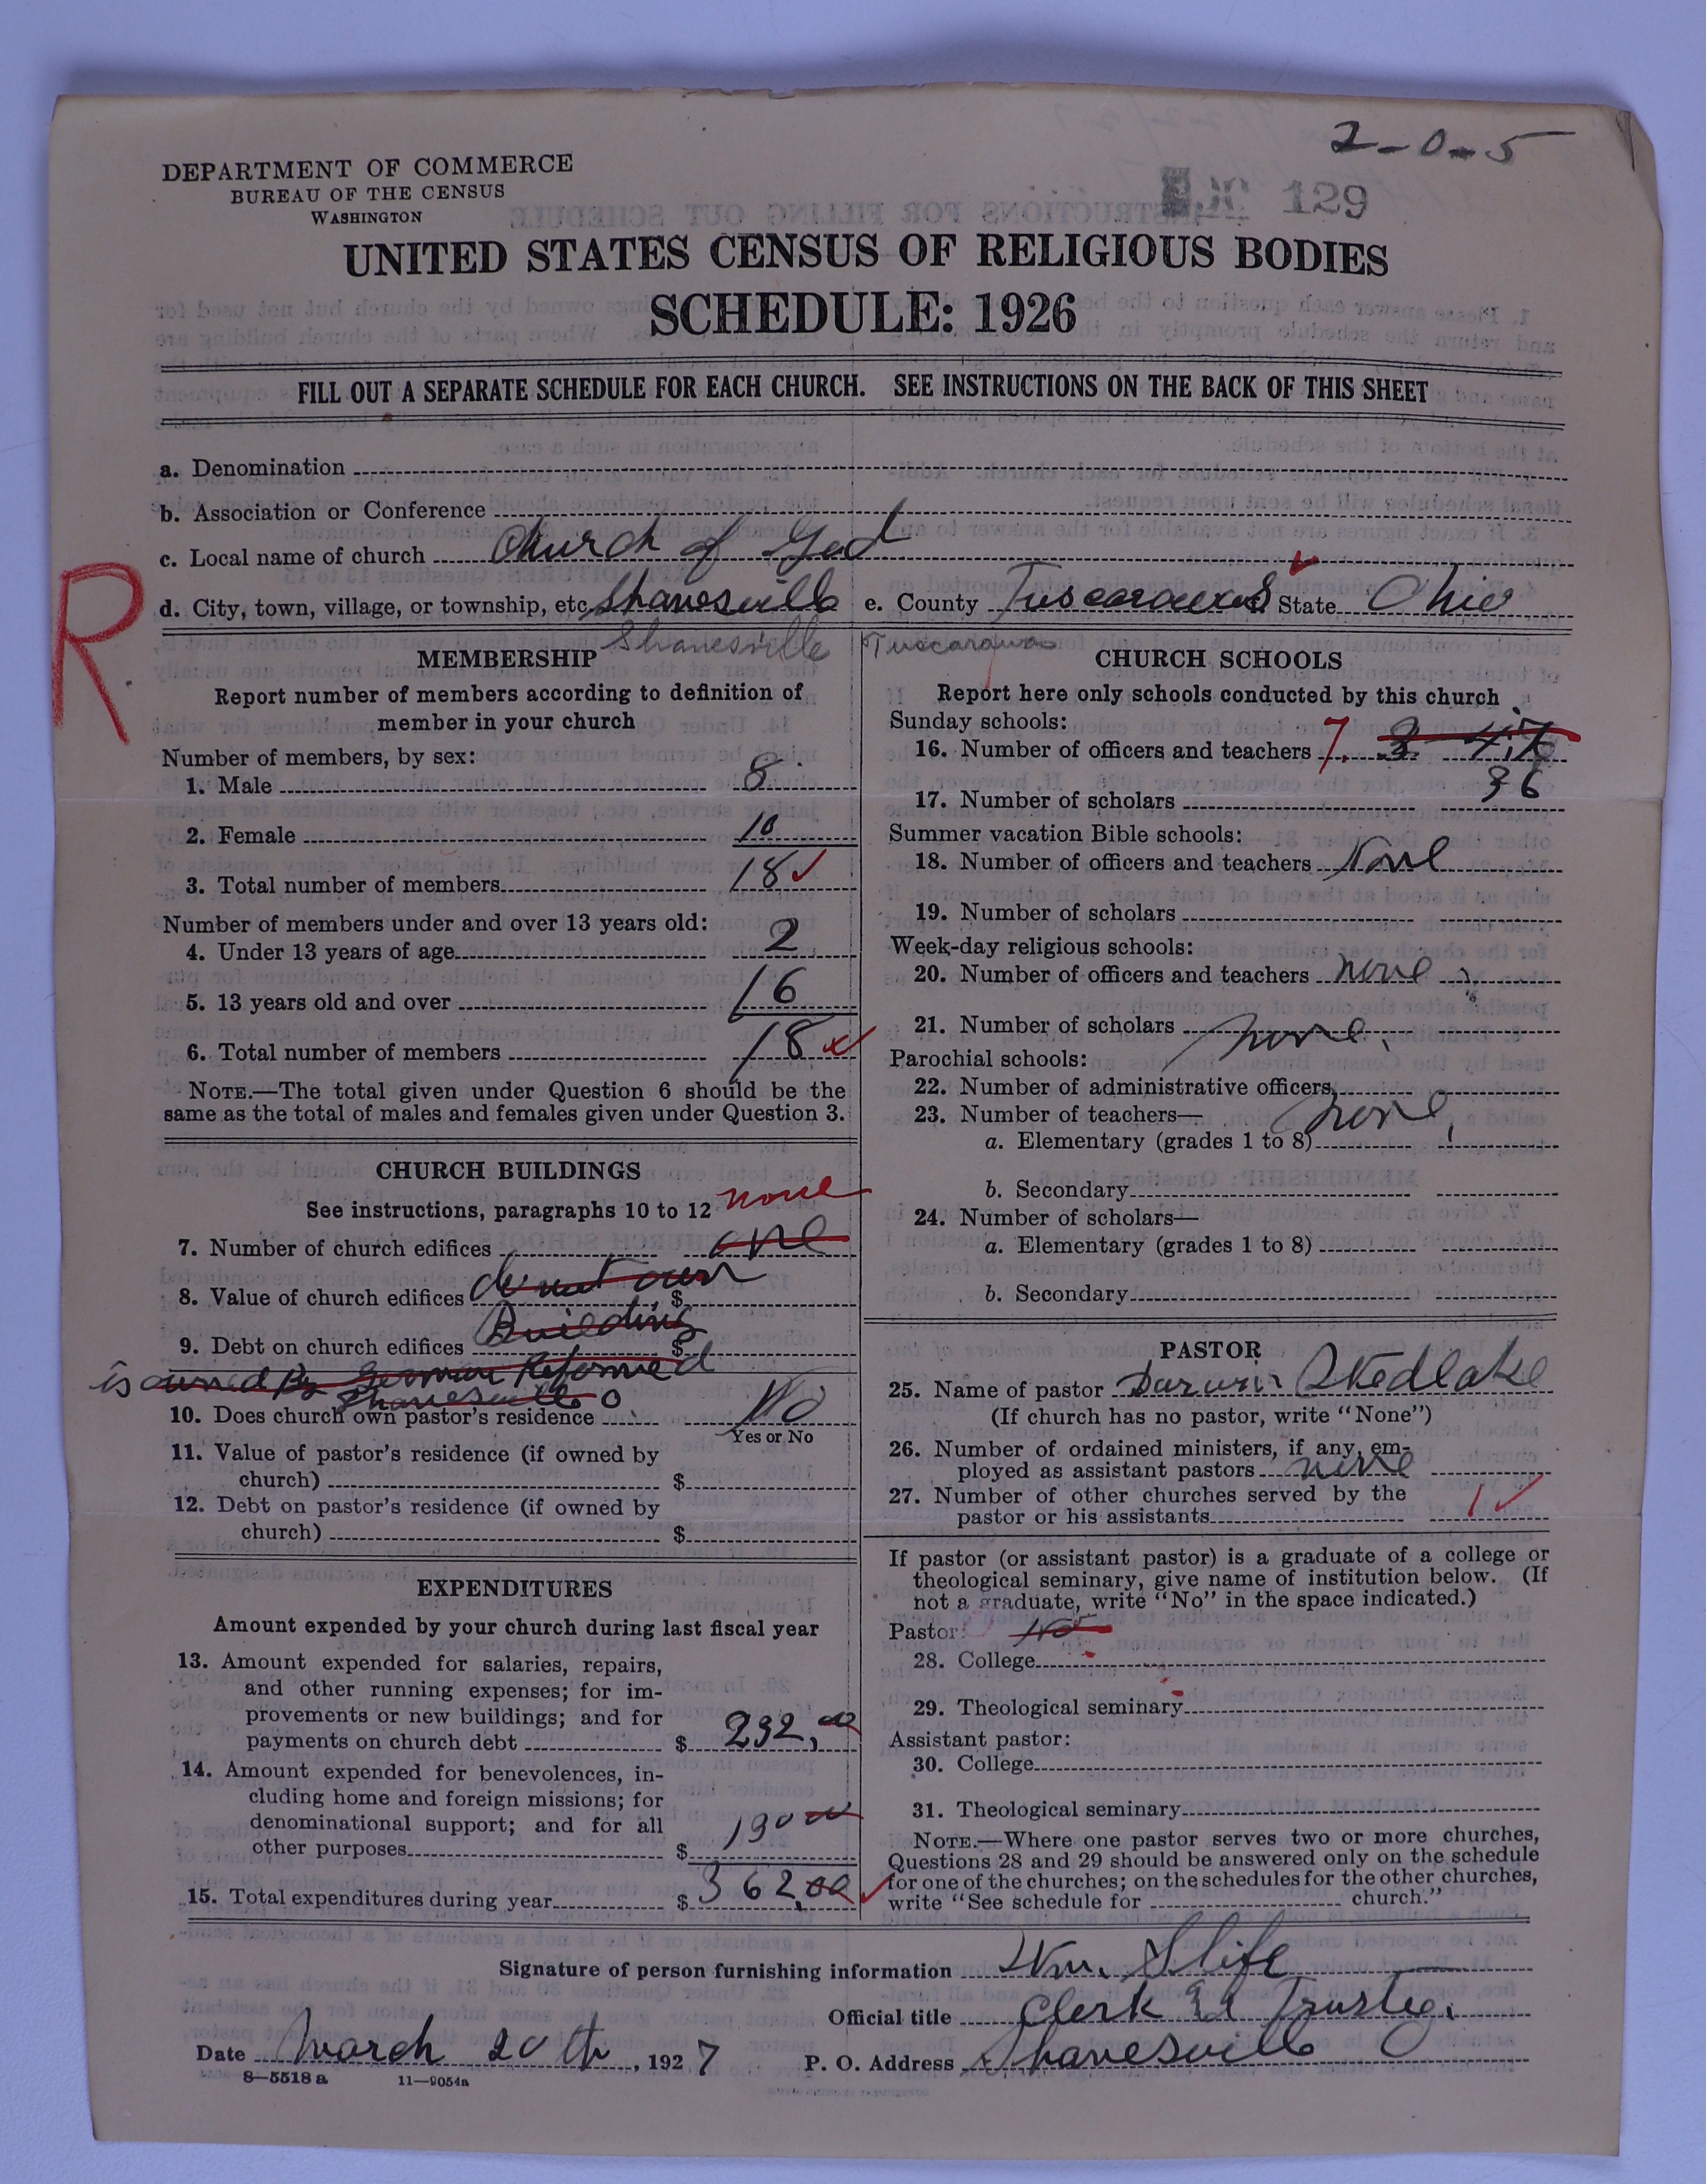 2-0-5
129
DEPARTMENT OF COMMERCE
BUREAU OF THE CENSUS
WASHINGTON
UNITED STATES CENSUS OF RELIGIOUS BODIES
SCHEDULE: 1926
FILL OUT A SEPARATE SCHEDULE FOR EACH CHURCH. SEE INSTRUCTIONS ON THE BACK OF THIS SHEET
a. Denomination
b. Association or Conference
c. Local name of church Church of God
R
d. City, town, village, or township, etc. Shanesville e. County Tuscarawas State Ohio
Shanesville Tuscarawas
MEMBERSHIP
Report number of members according to definition of
member in your church
Number of members, by sex:
1. Male 8
2. Female 10
3. Total number of members 18
Number of members under and over 13 years old:
4. Under 13 years of age 2
5. 13 years old and over 16
6. Total number of members 18
NOTE.—The total given under Question 6 should be the
same as the total of males and females given under Question 3.
CHURCH BUILDINGS
See instructions, paragraphs 10 to 12 none
7. Number of church edifices one
8. Value of church edifices do not own $
9. Debt on church edifices Building $
is owned By German Reformed
Shanesville O
10. Does church own pastor's residence No
Yes or No
11. Value of pastor's residence (if owned by
church) $
12. Debt on pastor's residence (if owned by
church) $
EXPENDITURES
Amount expended by your church during last fiscal year
13. Amount expended for salaries, repairs,
and other running expenses; for im-
provements or new buildings; and for
payments on church debt $ 232,00
14. Amount expended for benevolences, in-
cluding home and foreign missions; for
denominational support; and for all
other purposes $ 130 00
15. Total expenditures during year $ 362.00
CHURCH SCHOOLS
Report here only schools conducted by this church
Sunday schools:
16. Number of officers and teachers 7. 3
17. Number of scholars 36
Summer vacation Bible schools:
18. Number of officers and teachers None
19. Number of scholars
Week-day religious schools:
20. Number of officers and teachers none
21. Number of scholars none.
Parochial schools:
22. Number of administrative officers
23. Number of teachers— none
a. Elementary (grades 1 to 8)
b. Secondary
24. Number of scholars—
a. Elementary (grades 1 to 8)
b. Secondary
PASTOR
25. Name of pastor Darwin Stedlake
(If church has no pastor, write "None")
26. Number of ordained ministers, if any, em-
ployed as assistant pastors none
27. Number of other churches served by the
pastor or his assistants 1
If pastor (or assistant pastor) is a graduate of a college or
theological seminary, give name of institution below. (If
not a graduate, write "No" in the space indicated.)
Pastor: No
28. College
29. Theological seminary
Assistant pastor:
30. College
31. Theological seminary
NOTE.—Where one pastor serves two or more churches,
Questions 28 and 29 should be answered only on the schedule
for one of the churches; on the schedules for the other churches,
write "See schedule for church."
Signature of person furnishing information Wm. Slife
Official title Clerk Trustee.
Date March 20th, 1927 P. O. Address Shanesville O
8—5518 a 11—9054a